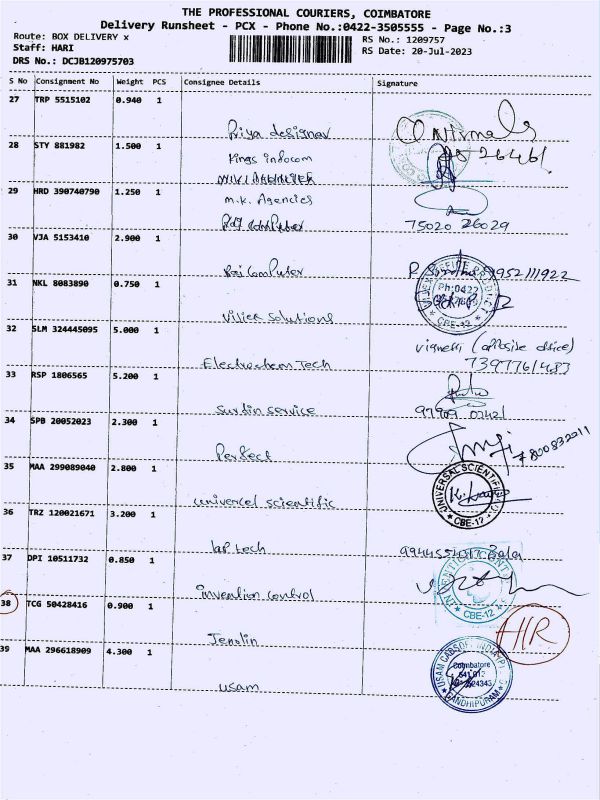 THE PROFESSIONAL COURIERS, COIMBATORE
Delivery Runsheet - PCX - Phone No.:0422-3505555 - Page No.:3
Route: BOX DELIVERY x
RS No.: 1209757
Staff: HARI
RS Date: 20-Jul-2023
DRS No.: DCJB120975703
S No Consignment No Weight PCS Consignee Details Signature
27 TRP 5515102 0.940 1
Priya designer Nirmala
28 STY 881982 1.500 1
Kings infocom
29 HRD 390740790 1.250 1
m.k. Agencies
computer 75020 26029
30 VJA 5153410 2.900 1
Sai Computer 9952111922
31 NKL 8083890 0.750 1
Ph:0422
CBE-12
Vilier Solutions
32 SLM 324445095 5.000 1
vignesh (opposite office)
Electrochem Tech 7397761483
33 RSP 1806565 5.200 1
Service
34 SPB 20052023 2.300 1
Perfect 7800832011
35 MAA 299089040 2.800 1
UNIVERSAL SCIENTIFIC
CBE-12
universel scientific
36 TRZ 120021671 3.200 1
lap tech Bala
37 DPI 10511732 0.850 1
CBE-12
invention control
38 TCG 50428416 0.900 1
HR
Jenslin
39 MAA 296618909 4.300 1
Coimbatore
641 012
GANDHIPURAM
usam